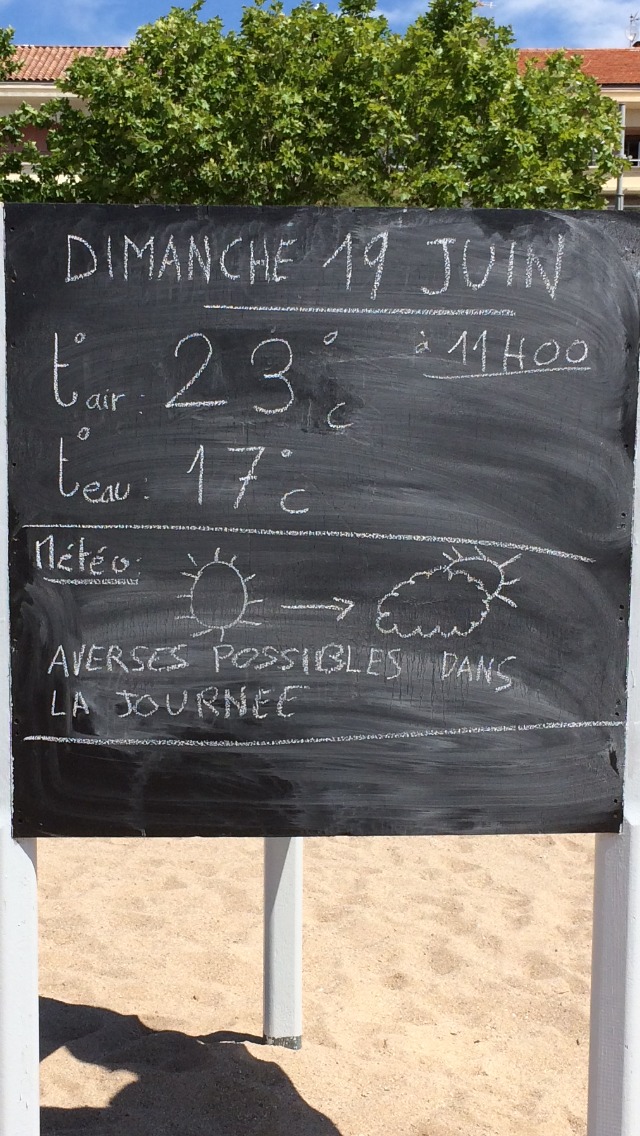 DIMANCHE 19 JUIN
t° air : 23°C à 11H00
t° eau : 17°C
Météo:
AVERSES POSSIBLES DANS
LA JOURNEE